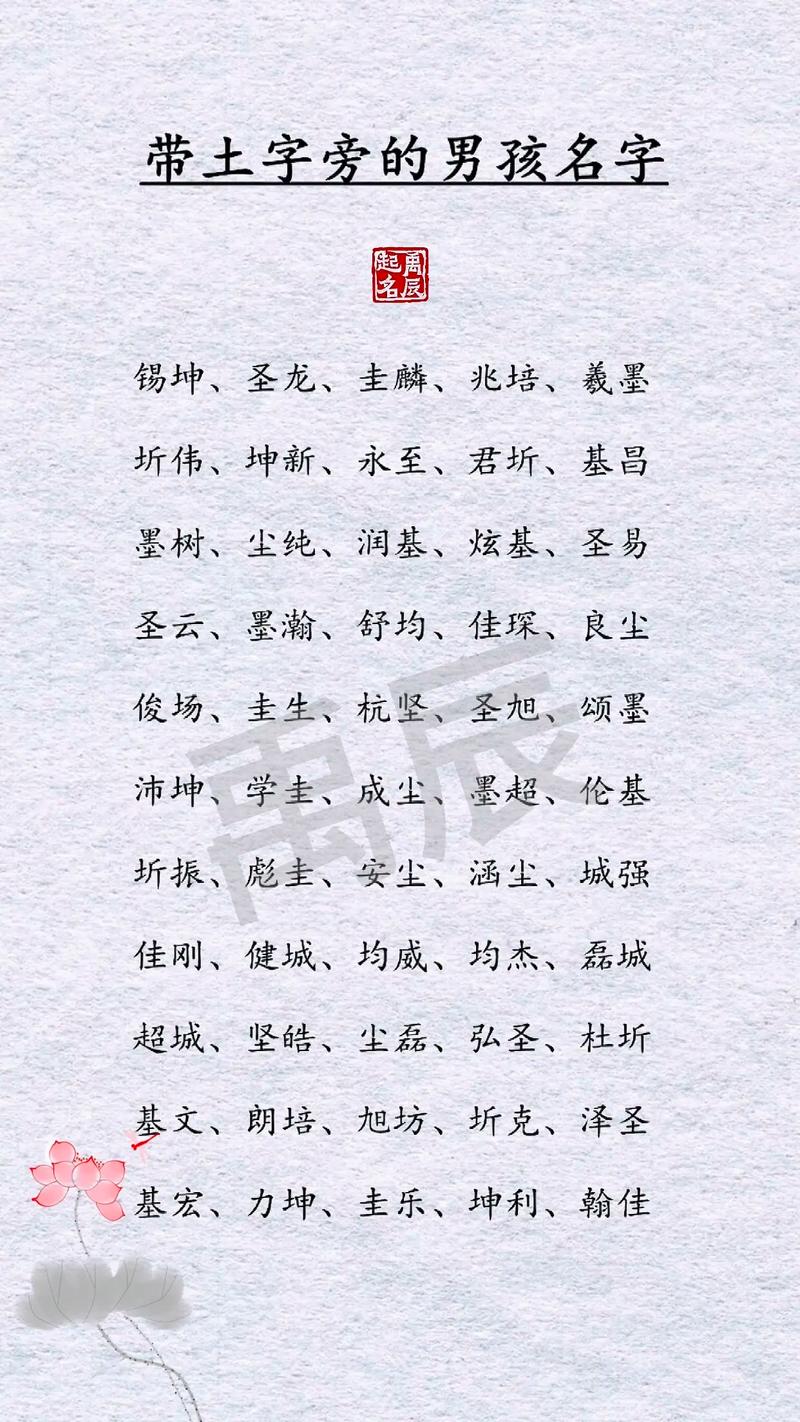 带土字旁的男孩名字
禹辰起名
锡坤、圣龙、圭麟、兆培、羲墨
圻伟、坤新、永至、君圻、基昌
墨树、尘纯、润基、炫基、圣易
圣云、墨瀚、舒均、佳琛、良尘
俊场、圭生、杭坚、圣旭、颂墨
沛坤、学圭、成尘、墨超、伦基
圻振、彪圭、安尘、涵尘、城强
佳刚、健城、均威、均杰、磊城
超城、坚皓、尘磊、弘圣、杜圻
基文、朗培、旭坊、圻克、泽圣
基宏、力坤、圭乐、坤利、翰佳
禹辰